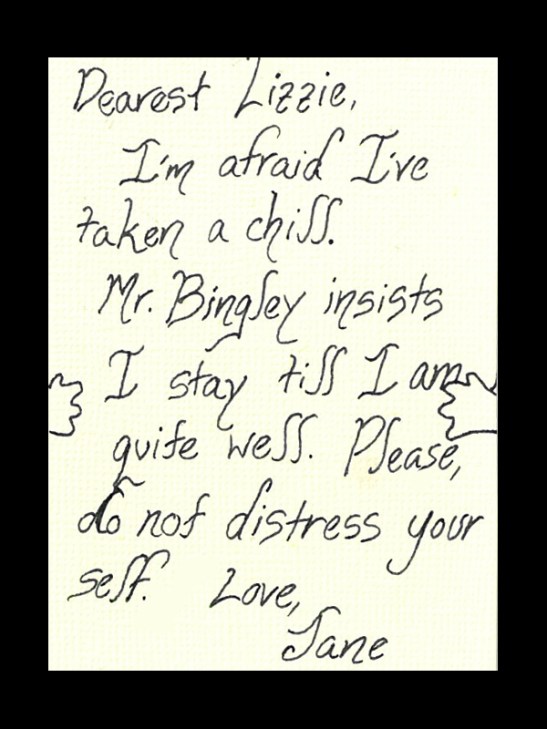 Dearest Lizzie,
I'm afraid I've
taken a chill.
Mr. Bingley insists
I stay till I am
quite well. Please,
do not distress your
self. Love,
Jane